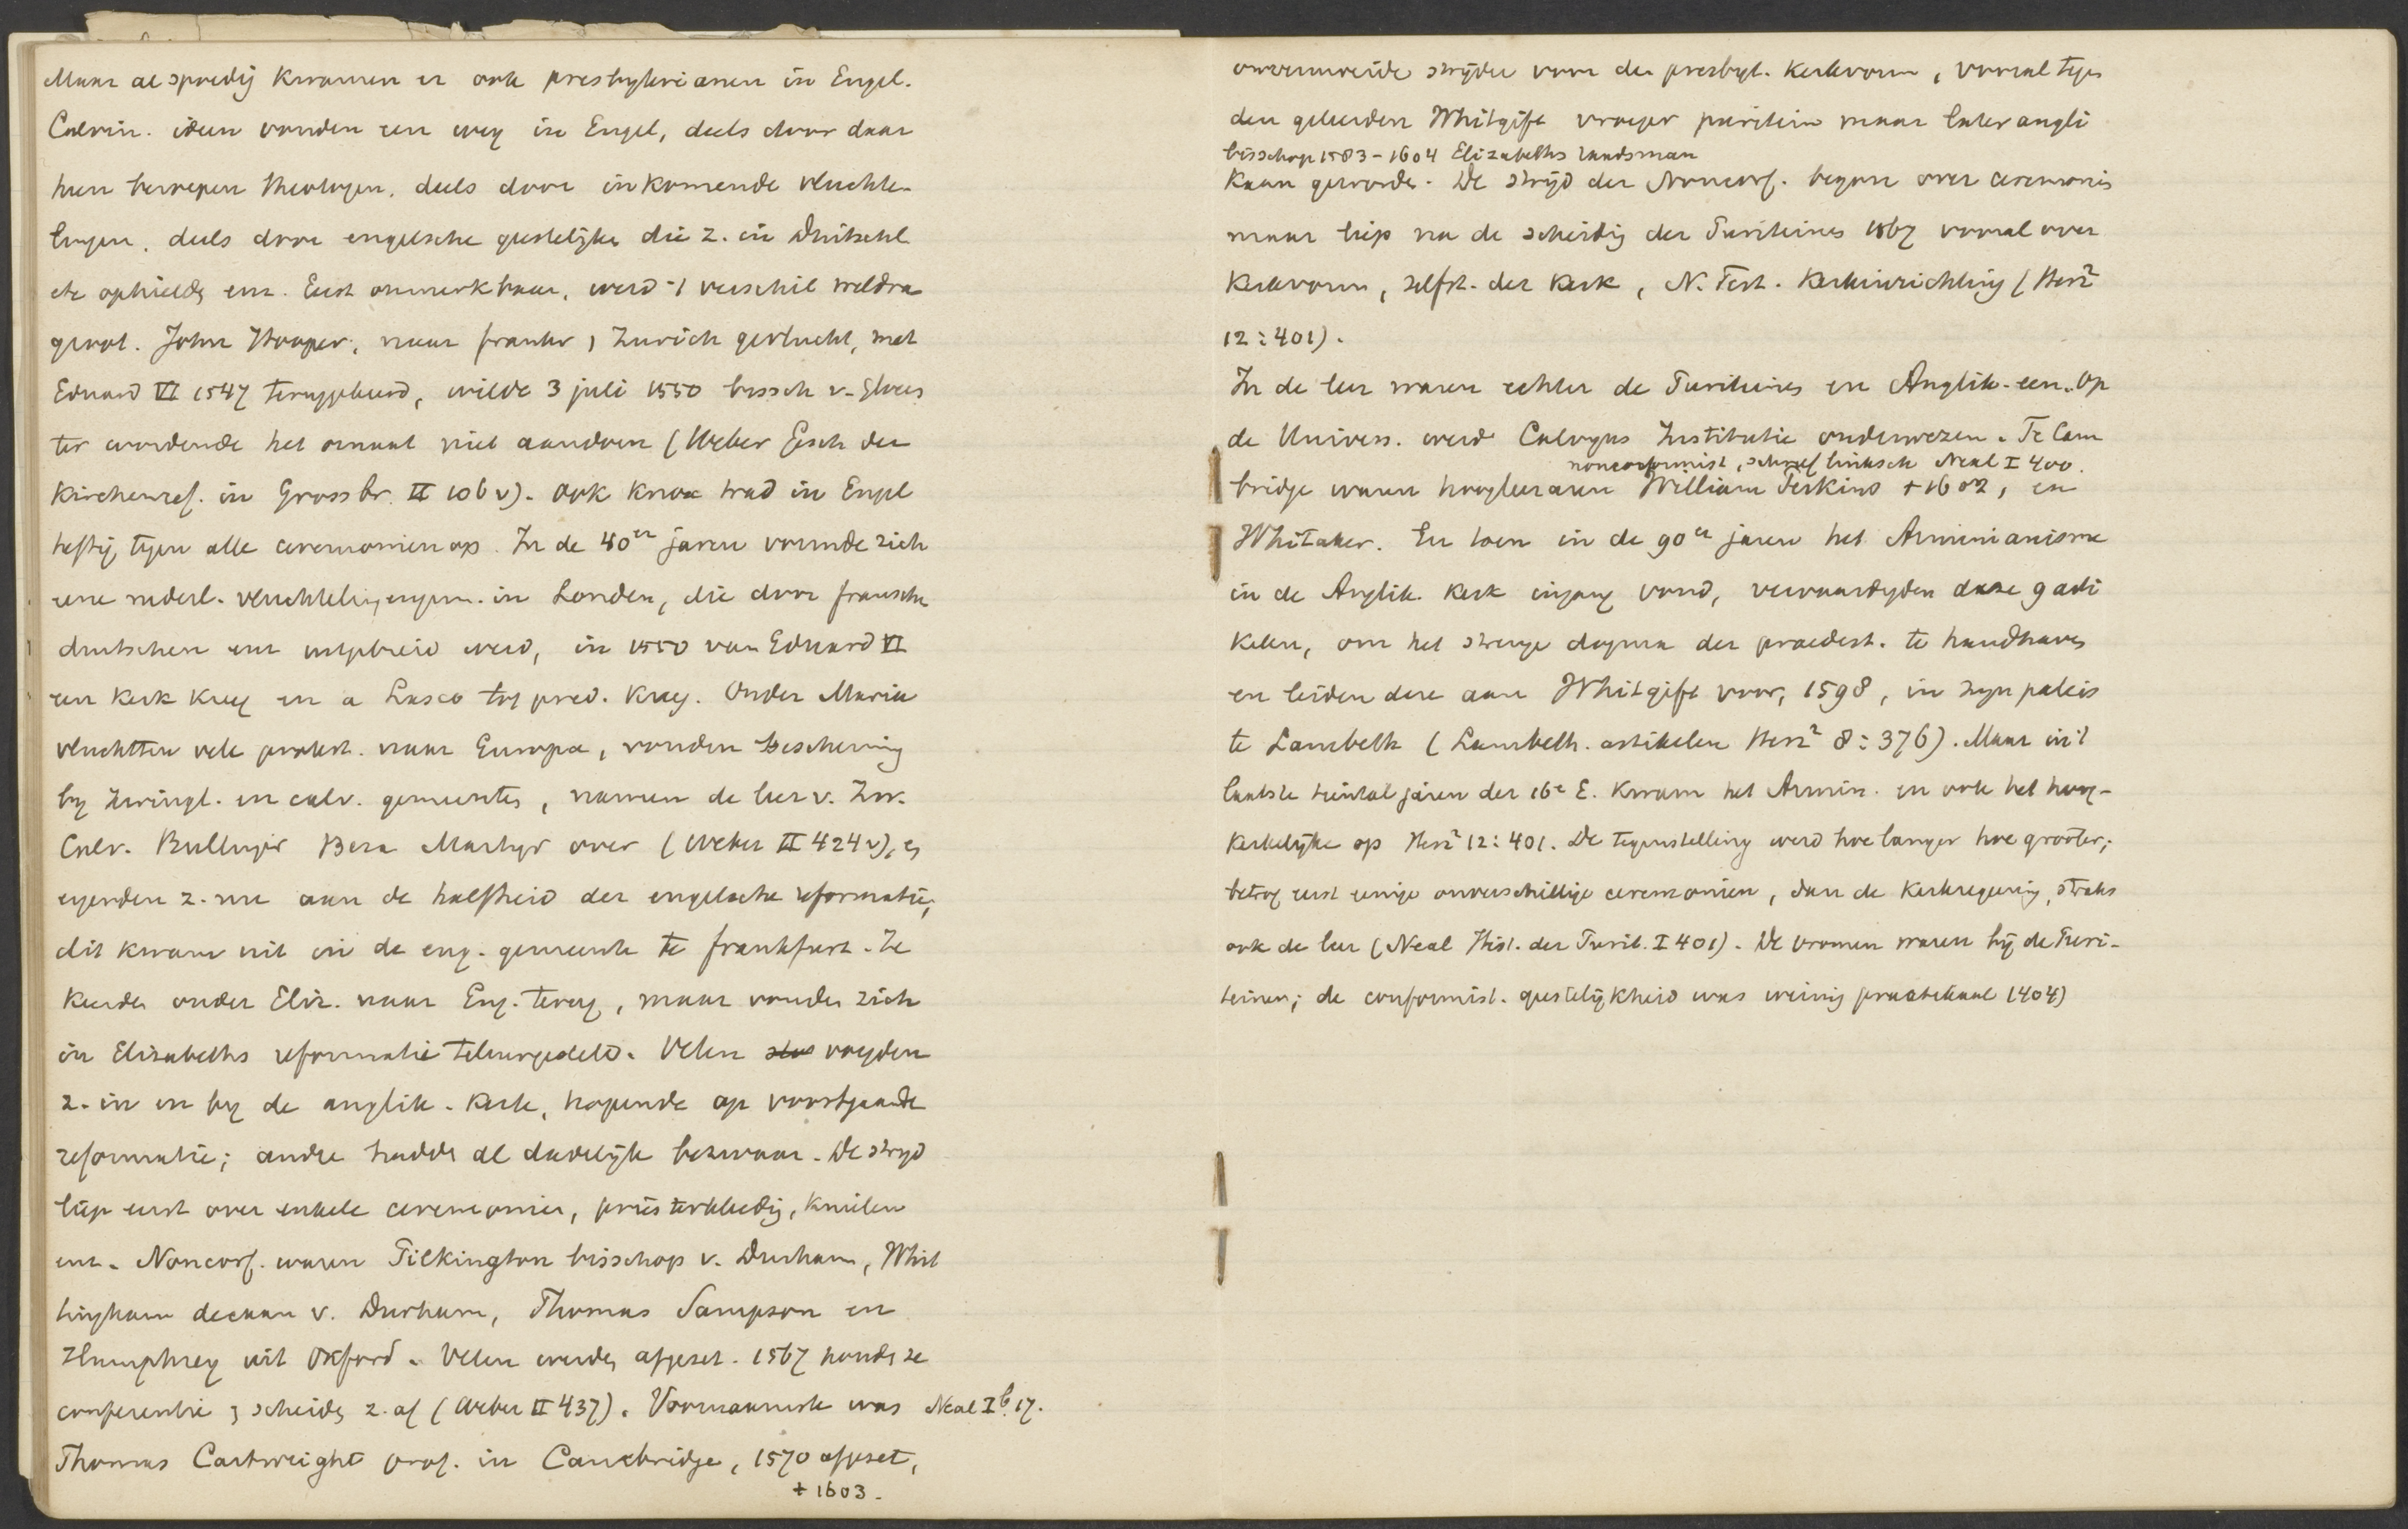 Maar al spoedig kwamen er ook presbyterianen in Engel.
Calvin. ideen vonden een weg in Engel, deels door daar
heen beroepen theologen, deels door inkomende vluchte-
lingen, deels door engelsche geestelijken die z. in Duitschl.
etc ophielden enz. Eerst onmerkbaar, werd 't verschil weldra
groot. John Hooper, naar frankr, Zurich gevlucht, met
Eduard VI 1547 teruggekeerd, wilde 3 juli 1550 bissch v. Gloces
ter wordende het ornaat niet aandoen (Weber Gesch der
Kirchenref. in Grossbr. II 106 v). Ook Knox trad in Engel
heftig tegen alle ceremonien op. In de 40er jaren vormde zich
eene nederl. vluchtelingengem. in London, die door fransche
duitschen enz uitgebreid werd, in 1550 van Eduard VI
een kerk kreeg en a Lasco tot pred. kreeg. Onder Maria
vluchtten vele protest. naar Europa, vonden bescherming
by Zwingl. en calv. gemeentes, namen de leer v. Zw.
Calv. Bullinger Beza Martyr over (Weber II 424 v), en
ergerden z. nu aan de halfheid der engelsche reformatie,
dit kwam uit in de eng. gemeente te frankfurt. Ze
keerden onder Eliz. naar Eng. terug, maar vonden zich
in Elisabeths reformatie teleurgesteld. Velen voegden
z. in en by de anglik. kerk, hopende op voortgaande
reformatie; andre hadden al dadelijk bezwaar. De stryd
liep eerst over enkele ceremonien, priesterkleedig, knielen
enz. Nonconf. waren Pilkington bisschop v. Durham, Whit
tingham decaan v. Durham, Thomas Sampson en
Humphrey uit Oxford. Velen werden afgezet. 1567 honden ze
conferentie, scheiden z. af (Weber II 437). Voornaamste was Neal I b. 17.
Thomas Cartwright prof. in Cambridge, 1570 afgezet,
+ 1603.
onvermoeide strijder voor den presbyt. kerkvorm, vooral tegen
den geleerden Whitgift vroeger puritein maar later angli
bisschop 1583-1604 Elizabeths raadsman
kaan geworden. De strijd der Nonconf. begon over ceremonies
maar liep na de scheidig der Puriteines 1567 vooral over
Kerkvorm, zelfst. der Kerk, N. Test. Kerkinrichting (Herz²
12:401).
In de leer waren echter de Puriteines en Anglik. een. Op
de Univers. werd Calvyns Institutie onderwezen. Te Cam
nonconformist, schreef Neal I 400.
bridge waren hoogleeraren William Perkins + 1602, en
Whitaker. En toen in de 90er jaren het Arminianisme
in de Anglik. Kerk ingang vond, vervaardigden deze 9 arti
kelen, om het strenge dogma der praedest. te handhaven
en leiden deze aan Whitgift voor, 1598, in zyn paleis
te Lambeth (Lambeth. artikelen Herz² 8:376). Maar in 't
laatste tiental jaren der 16e E. kwam het Armin. en ook het hoog-
kerkelijke op Herz² 12:401. De tegenstelling werd hoe langer hoe grooter;
betrof eerst eenige onverschillige ceremonien, dan de kerkregering, straks
ook de leer (Neal Hist. der Purit. I 401). De vromen waren bij de Puri-
teinen; de conformist. geestelijkheid was weinig practikaal (404)